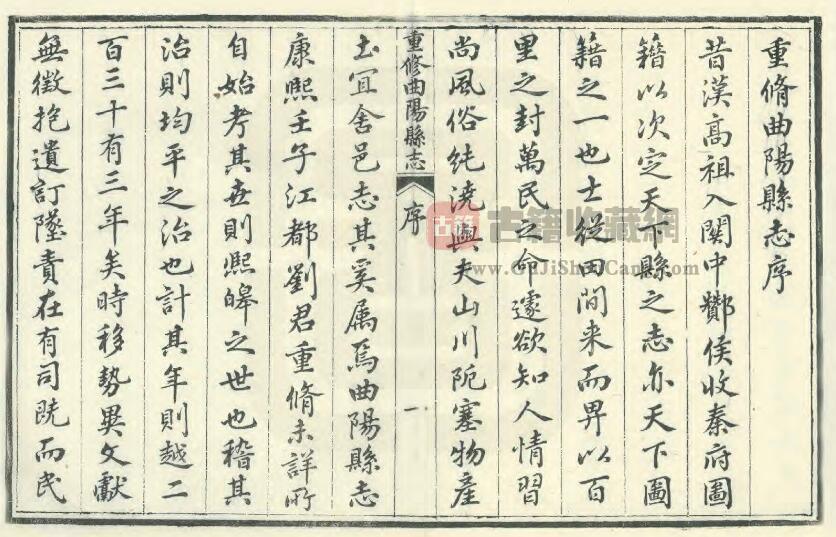 重脩曲陽縣志序
昔漢高祖入關中酇侯收秦府圖
籍以次定天下縣之志亦天下圖
籍之一也士從田間来而畀以百
里之封萬民之命遽欲知人情習
尚風俗純澆與夫山川阨塞物產
重修曲陽縣志
序
一
土冝舍邑志其奚属焉曲陽縣志
康熙壬子江都劉君重脩未詳所
自始考其世則熙皞之世也稽其
治則均平之治也計其年則越二
百三十有三年矣時移勢異文獻
無徵抱遺訂墜責在有司既而民
古籍
古籍收藏網
www.GuJiShuCang.com